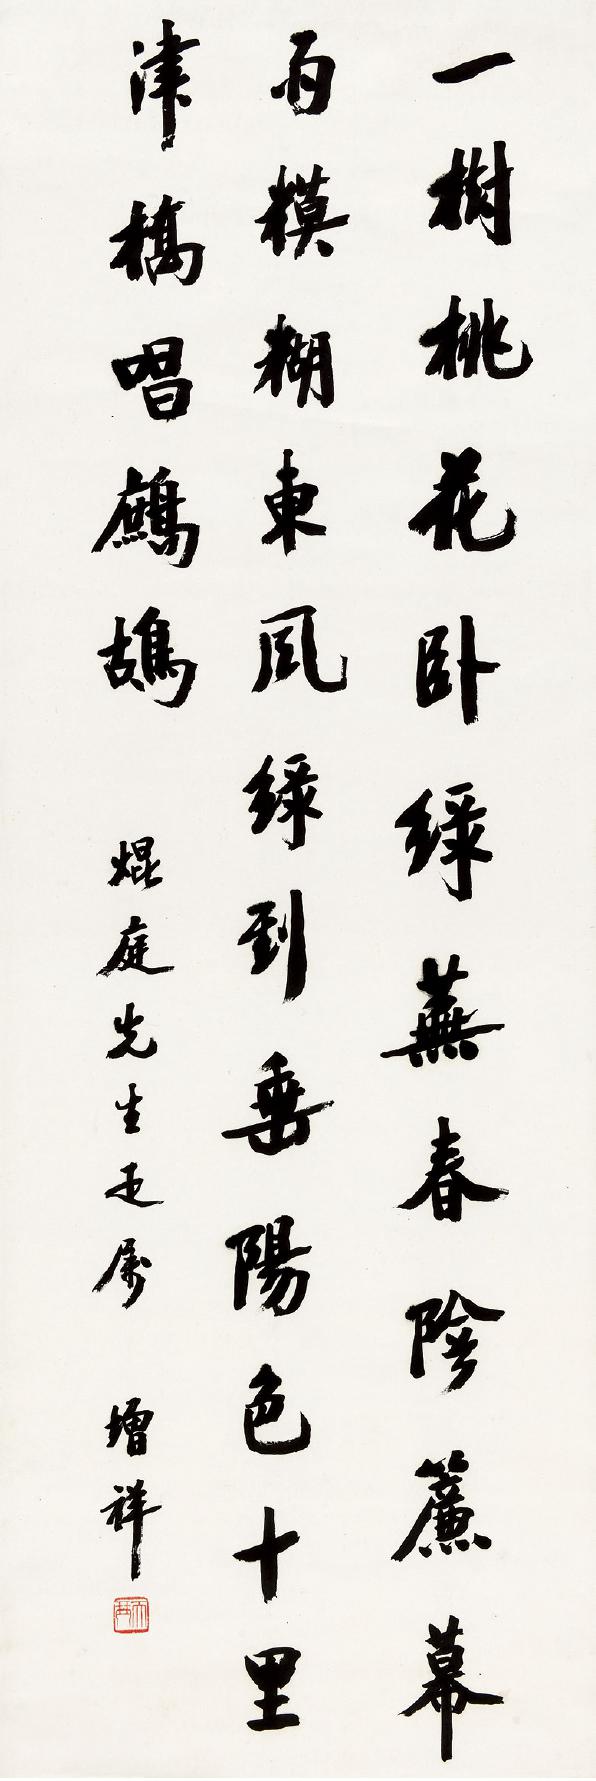 一樹桃花卧綠蕪春陰簾幕
雨糢糊東風綠到垂陽色十里
津橋唱鷓鴣
焜庭先生疋属
增祥